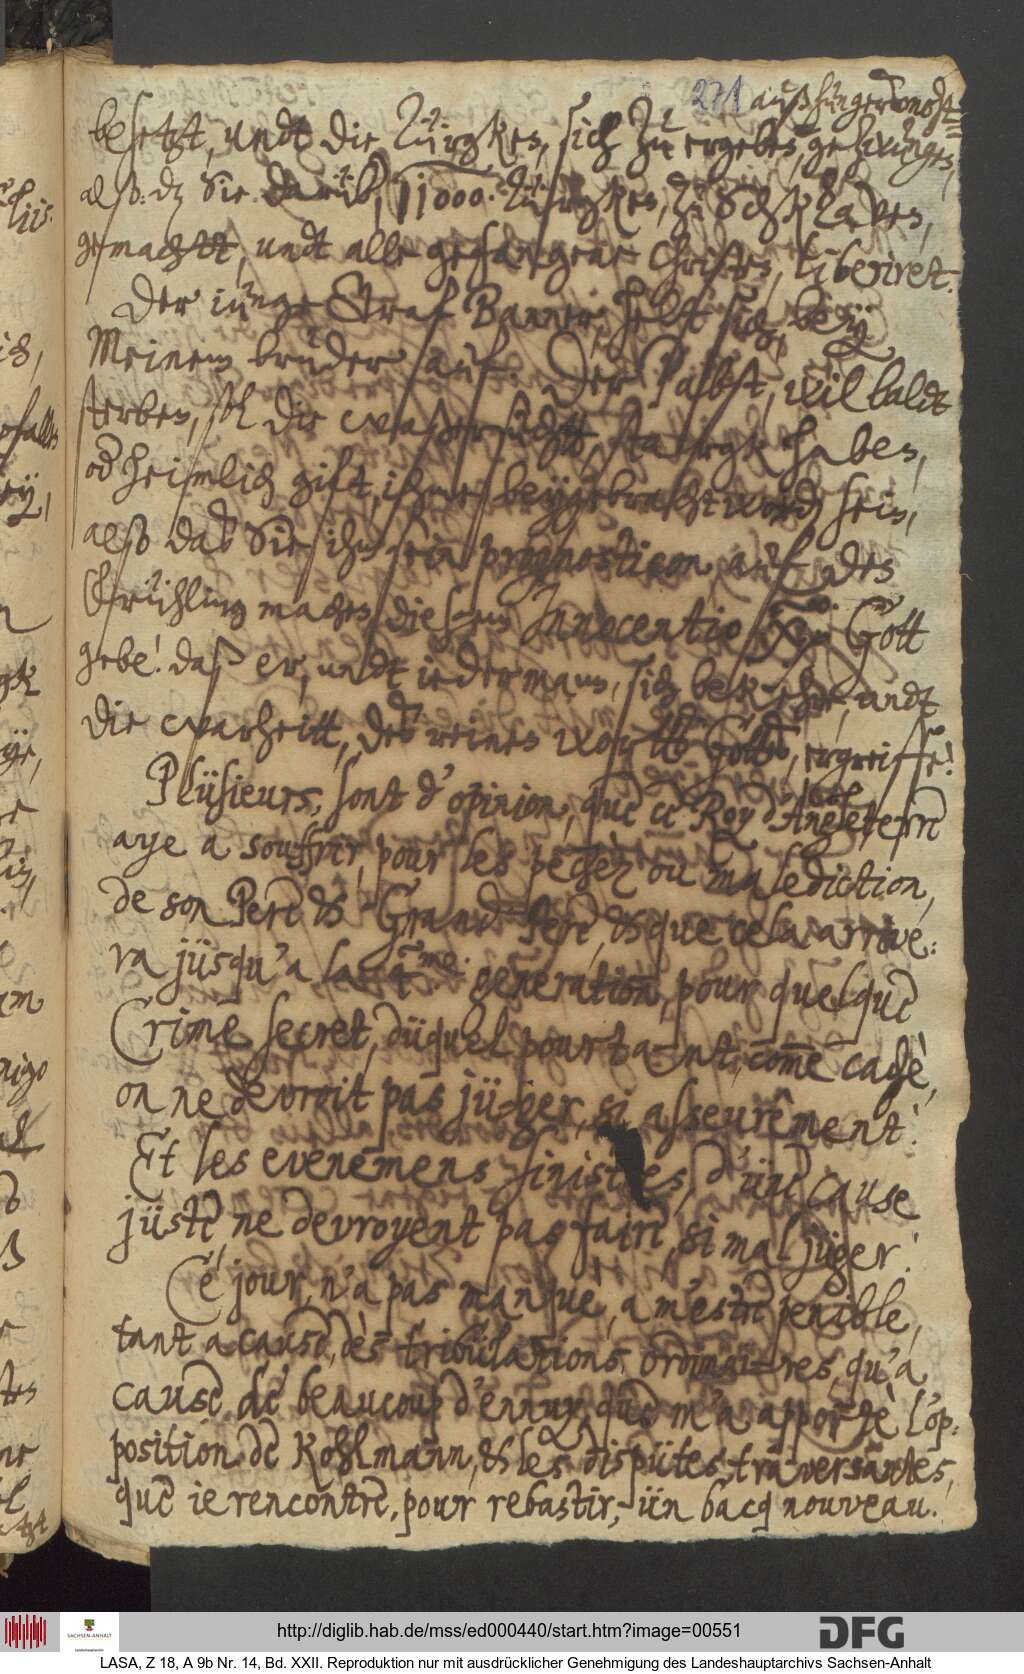 271 außhungersnoht
besetzt, undt die Türgken, sich zu ergeben, gezwungen,
also: dz Sie darüb, 11000. Türgken, zu Schklaven,
gemachtt, undt alle gefangene Christen, liberiret.
Der iunge Graf Banner, helt sich, bey
Meinem bruder auf. Der Pabst, wil baldt
sterben, sol die waßersuchtt, starg haben,
od heimlich gift, ihme beygebracht word sein,
also daß Sie ihm sein prognosticon, auf den
Frühling machen, diesem Innocentio X. Gott
gebe! daß er, undt iedermann, sich bekehre, undt
die warheitt, des reinen worttes Gottes, ergreiffe!
Plüsieurs, sont d'opinion, que ce Roy d'Angleterre
aye a souffrir, pour les pechèz ou malediction,
de son Pere & Grand-Pere, & que cela arrive-
ra jüsqu'a la 4me. generation, pour quelque
Crime secret, düquel pourtant, come caché,
on ne devroit pas jüger, si asseurèment!
Et les evenemens sinistres, d'üne cause
jüste ne devroyent pas faire, si mal jüger!
Cé jour, n'a pas manquè, a m'estre penible,
tant a cause, dès tribülations, ordinaires, qu'a
cause, de beaucoup d'ennuy, que m'a apportè l'op-
position de Kohlmann, & les dispütes, traversantes,
que ie rencontre, pour rebastir, ün bacq nouveau.
http://diglib.hab.de/mss/ed000440/start.htm?image=00551
DFG
SACHSEN-ANHALT
LASA, Z 18, A 9b Nr. 14, Bd. XXII. Reproduktion nur mit ausdrücklicher Genehmigung des Landeshauptarchivs Sachsen-Anhalt